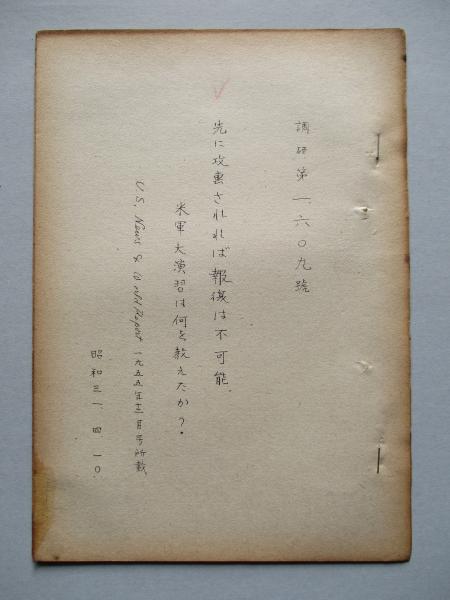 調研第一、六〇九號
先に攻裏されれば報復は不可能
米軍大演習は何を教えたか?
U.S. News & World Report 一九五五年十二月号所載
昭和三一、四、一〇